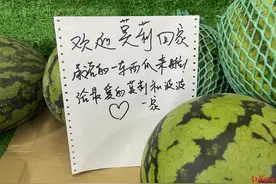 欢迎莫莉回家
承诺的一车西瓜来啦!
给最爱的莫莉和波波
一家